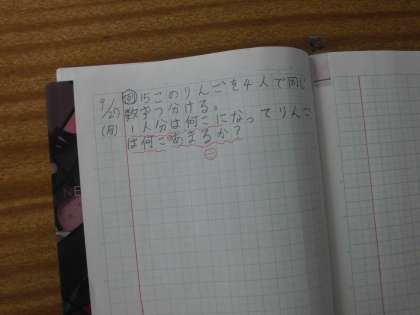 9/27 問 15このりんごを4人で同じ
数ずつ分ける。
(月) 1人分は何こになってりんご
は何こあまるか?